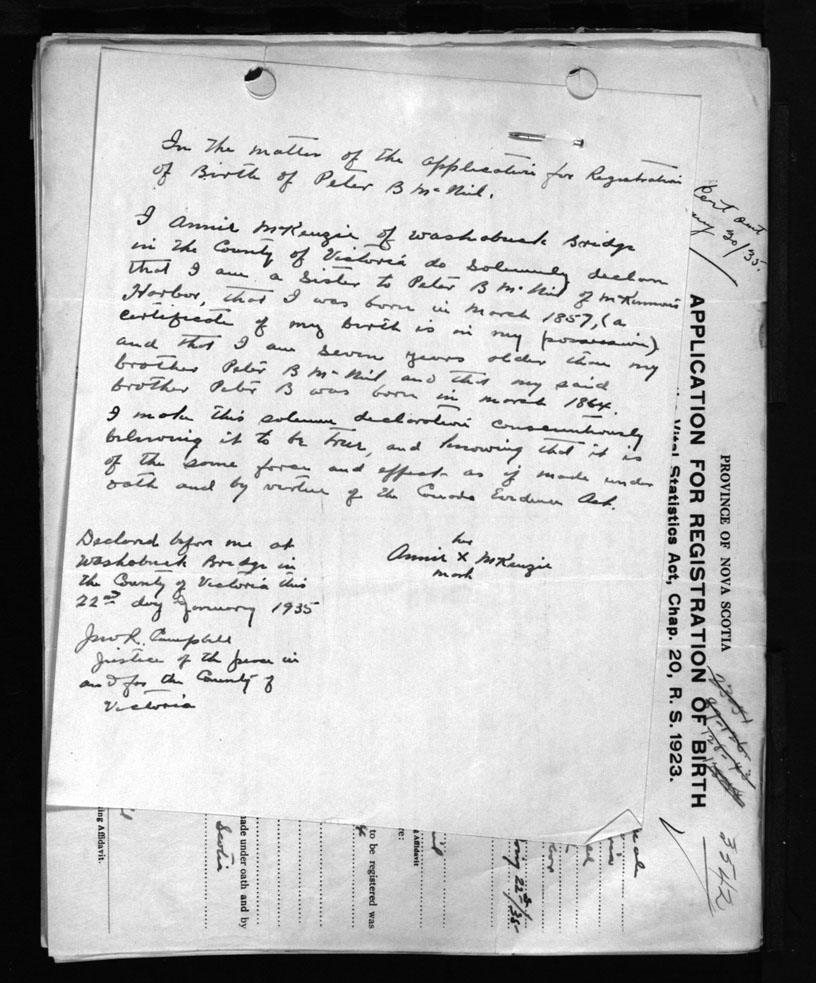 In the matter of the application for Registration
of Birth of Peter B McNeil.
I Annie McKenzie of Washabuck Bridge
in the County of Victoria do Solemnly declare
that I am a Sister to Peter B McNeil of McKinnons
Harbor, that I was born in March 1857, (a
certificate of my birth is in my possession)
and that I am seven years older than my
brother Peter B McNeil and that my said
brother Peter B was born in march 1864.
I make this solemn declaration conscientiously
believing it to be true, and knowing that it is
of the same force and effect as if made under
oath and by virtue of the Canada Evidence Act.
Declared before me at
Washabuck Bridge in
the County of Victoria this
22nd day January 1935
her
Annie X McKenzie
mark
Jno R. Campbell
Justice of the peace in
and for the County of
Victoria
Cert out
30/35.
PROVINCE OF NOVA SCOTIA
APPLICATION FOR REGISTRATION OF BIRTH
Vital Statistics Act, Chap. 20, R. S. 1923.
3542
ing Affidavit.
made under oath and by
Scotia
to be registered was
re:
Affidavit
22nd/35